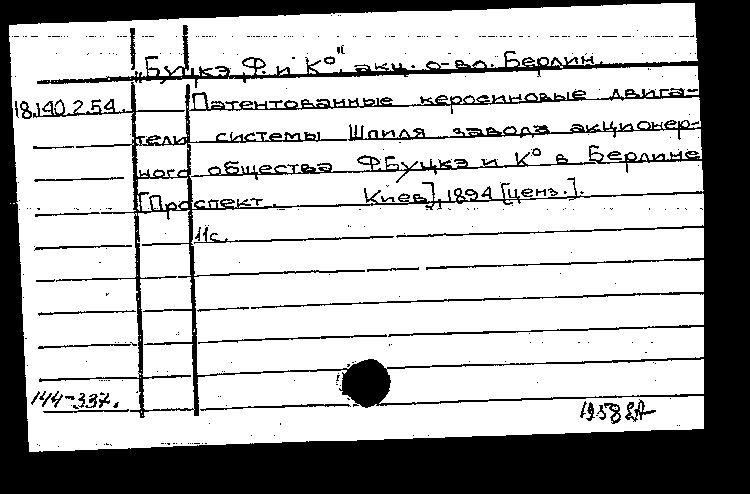 „Буцкэ, Ф. и К°", акц. о-во. Берлин.
18.140.2.54. Патентованные керосиновые двига-
тели системы Шпиля завода акционер-
ного общества Ф.Буцкэ и К° в Берлине
[Проспект. Киев], 1894 [ценз.].
11с.
144-337.
1958